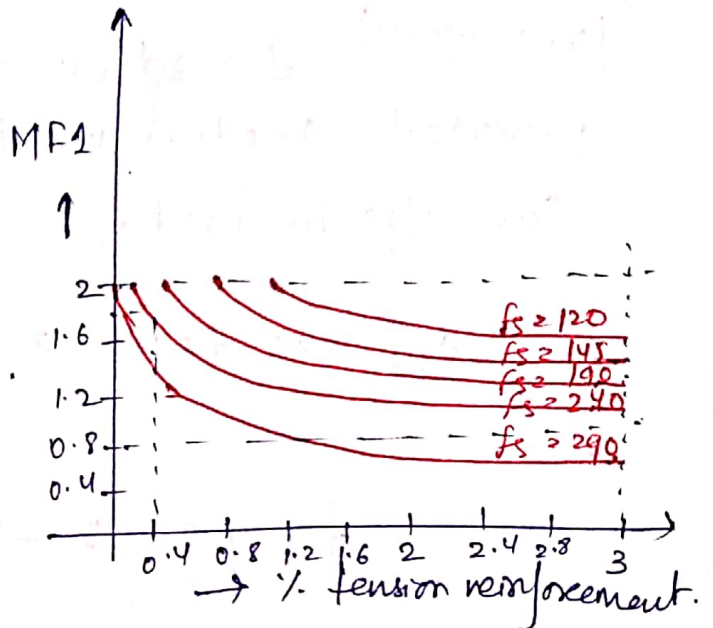 MF1
↑
2
1.6
1.2
0.8
0.4
fs = 120
fs = 145
fs = 190
fs = 240
fs = 290
0.4 0.8 1.2 1.6 2 2.4 2.8 3
→ % tension reinforcement.